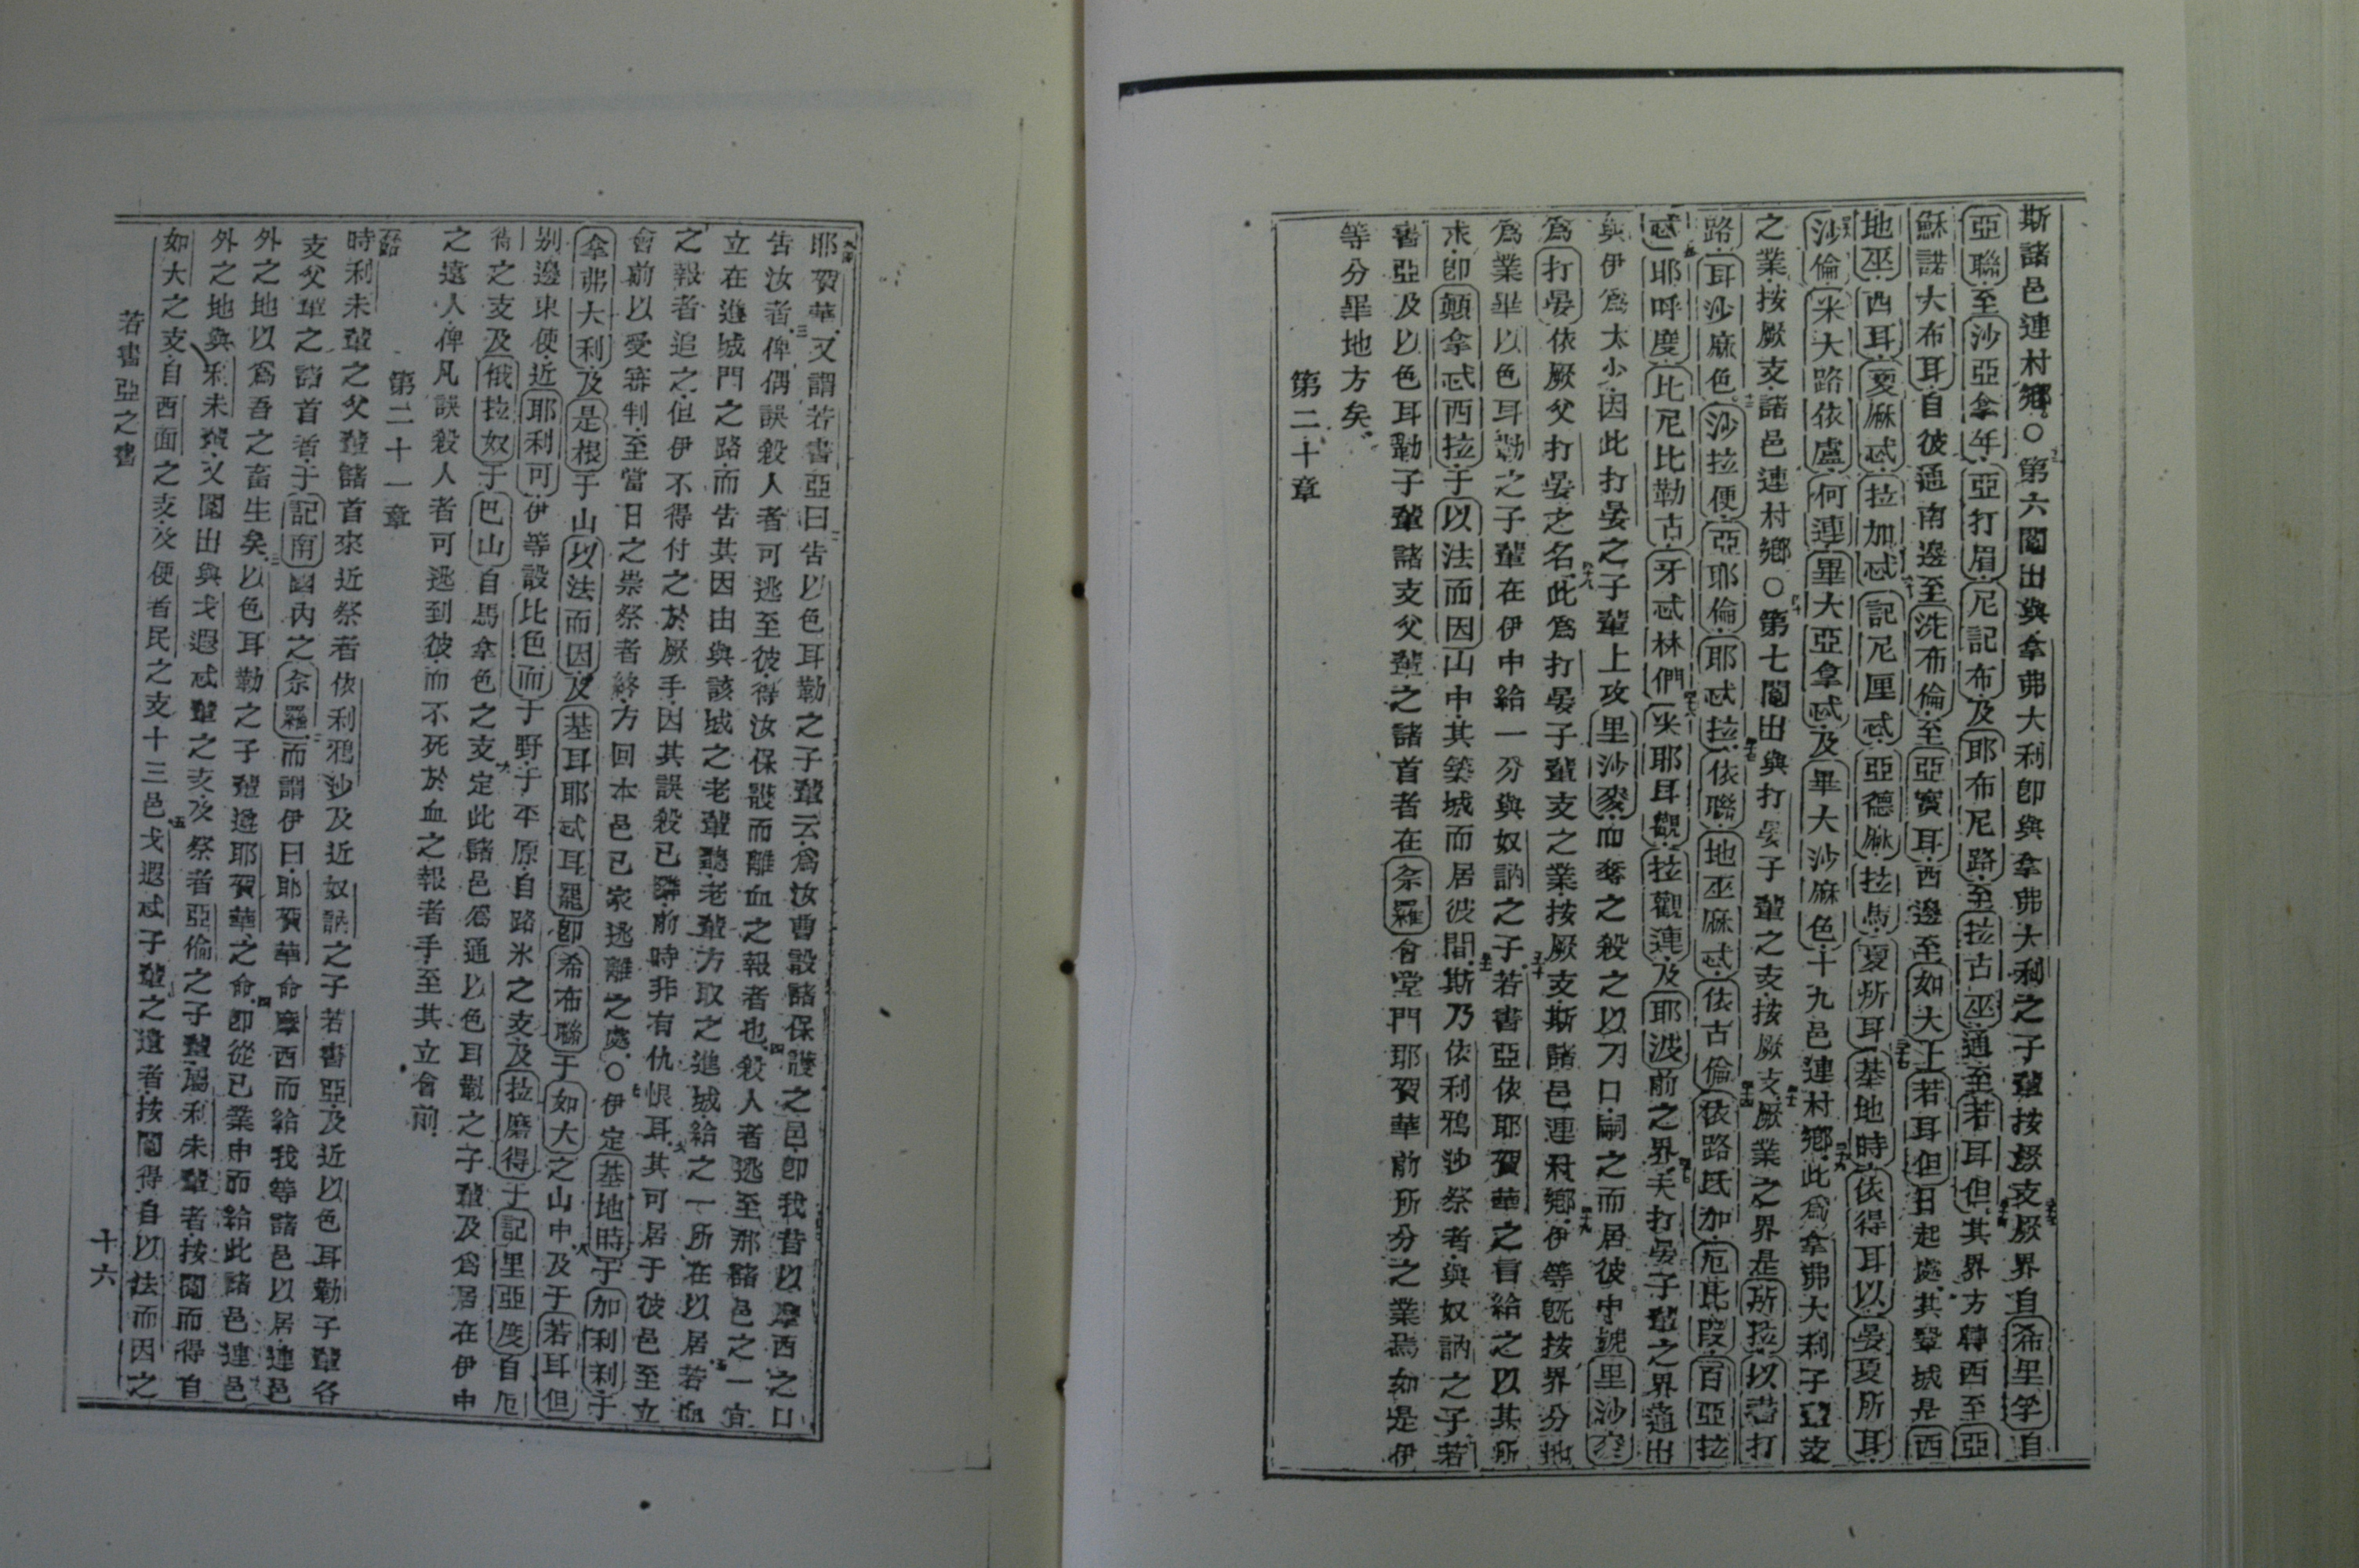 斯諸邑連村鄉。○第六鬮出與拿弗大利卽與拿弗大利之子輩按厥支厥界自希里孚自
亞聯至沙亞拿年亞打眉尼記布及耶布尼路至拉古巫通至若耳但其界方轉西至亞
穌諾大布耳自彼通南邊至洗布倫至亞寔耳西邊至如大上若耳但日起處其鞏城是西
地巫西耳夏麻忒拉加忒記尼厘忒亞德麻拉馬夏所耳基地時依得耳以晏夏所耳
沙倫米大路依盧何連畢大亞拿忒及畢大沙麻色十九邑連村鄉此爲拿弗大利子輩支
之業按厥支諸邑連村鄉○第七鬮出與打晏子輩之支按厥支厥業之界是所拉以莃打
路耳沙麻色沙拉便亞耶倫耶忒拉依聯地巫麻忒依古倫依路氐加厄比段百亞拉
忒耶呼度比尼比勒古牙忒林們米耶耳觀拉觀連及耶波前之界夫打晏子輩之界通出
與伊爲太少因此打晏之子輩上攻里沙麥而奪之殺之以刀口嗣之而居彼中號里沙麥
爲打晏依厥父打晏之名此爲打晏子輩支之業按厥支斯諸邑連村鄉伊等旣按界分地
爲業畢以色耳勒之子輩在伊中給一分與奴訥之子若書亞依耶賀華之旨給之以其所
求卽顛拿忒西拉于以法而因山中其築城而居彼間斯乃依利鴉沙祭者與奴訥之子若
書亞及以色耳勒子輩諸支父輩之諸首者在佘羅會堂門耶賀華前所分之業焉如是伊
等分畢地方矣
第二十章
耶賀華又謂若書亞曰告以色耳勒之子輩云爲汝曹設諸保護之邑卽我昔以摩西之口
告汝者俾偶誤殺人者可逃至彼得汝保護而離血之報者也殺人者逃至那諸邑之一宜
立在進城門之路而告其因由與該城之老輩聽老輩方取之進城給之一所在以居若血
之報者追之但伊不得付之於厥手因其誤殺已鄰前時非有仇恨耳其可居于彼邑至立
會前以受審判至當日之祟祭者終方回本邑已家逃離之處○伊定基地時于加利利于
拿弗大利及是根于山以法而因及基耳耶忒耳罷卽希布聯于如大之山中及于若耳但
別邊東便近耶利可伊等設比色而于野于平原自路米之支及拉磨得于記里亞度自厄
得之支及俄拉奴于巴山自馬拿色之支定此諸邑爲通以色耳勒之子輩及爲居在伊中
之遠人俾凡誤殺人者可逃到彼而不死於血之報者手至其立會前
第二十一章
時利未輩之父輩諸首來近祭者依利鴉沙及近奴訥之子若書亞及近以色耳勒子輩各
支父輩之諸首者于記南國內之佘羅而謂伊曰耶賀華命摩西而給我等諸邑以居連邑
外之地以爲吾之畜生矣以色耳勒之子輩遵耶賀華之命卽從已業中而給此諸邑連邑
外之地與利未輩又鬮出與戈遐忒輩之支及祭者亞倫之子輩屬利未輩者按鬮而得自
如大之支自西面之支及便者民之支十三邑戈遐忒子輩之遺者按鬮得自以法而因之
若書亞之書
十六